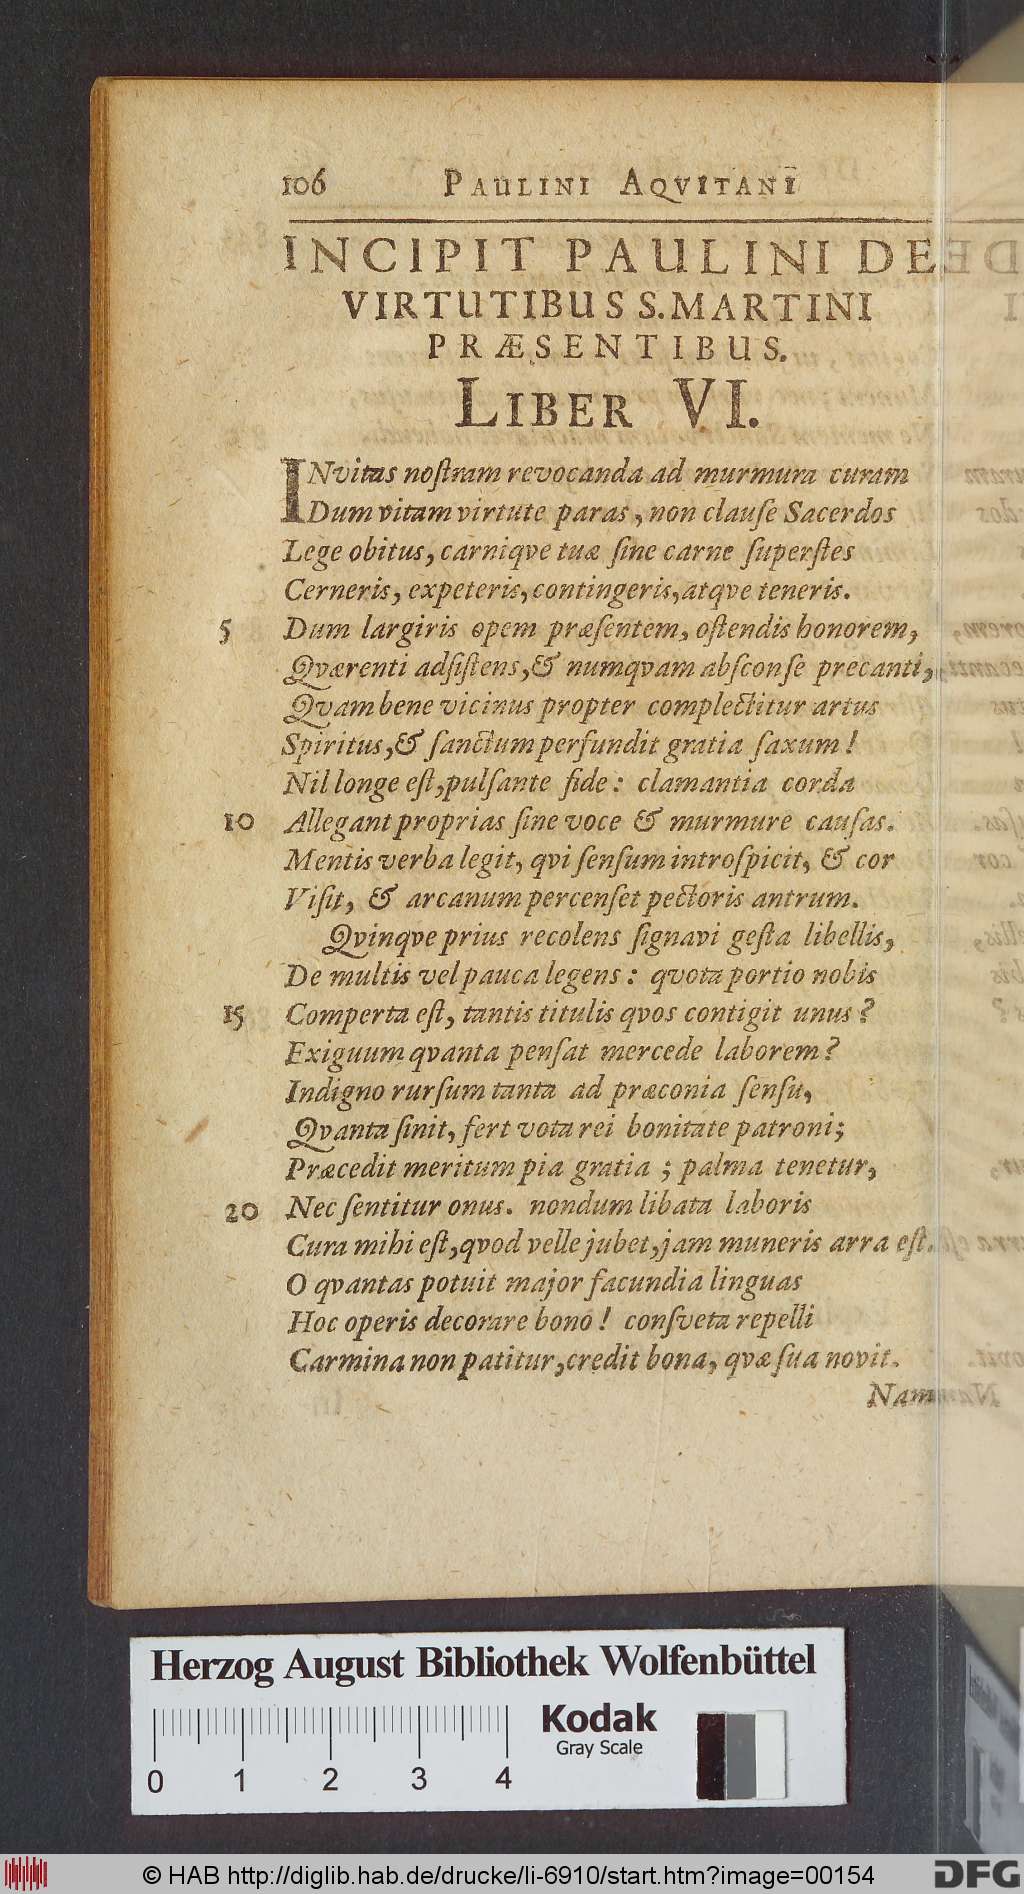 106 PAULINI AQVITANI
INCIPIT PAULINI DE
VIRTUTIBUS S. MARTINI
PRÆSENTIBUS.
LIBER VI.
INvitas noſtram revocanda ad murmura curam
Dum vitam virtute paras, non clauſe Sacerdos
Lege obitus, carniqve tuæ ſine carne ſuperſtes
Cerneris, expeteris, contingeris, atqve teneris.
5 Dum largiris opem præſentem, oſtendis honorem,
Qværenti adſiſtens, & numqvam abſconſe precanti,
Qvam bene vicinus propter complectitur artus
Spiritus, & ſanctum perfundit gratia ſaxum!
Nil longe eſt, pulſante fide: clamantia corda
10 Allegant proprias ſine voce & murmure cauſas.
Mentis verba legit, qvi ſenſum introſpicit, & cor
Viſit, & arcanum percenſet pectoris antrum.
Qvinqve prius recolens ſignavi geſta libellis,
De multis vel pauca legens: qvota portio nobis
15 Comperta eſt, tantis titulis qvos contigit unus?
Exiguum qvanta penſat mercede laborem?
Indigno rurſum tanta ad præconia ſenſu,
Qvanta ſinit, fert vota rei bonitate patroni;
Præcedit meritum pia gratia; palma tenetur,
20 Nec ſentitur onus. nondum libata laboris
Cura mihi eſt, qvod velle jubet, jam muneris arra eſt.
O qvantas potuit major facundia linguas
Hoc operis decorare bono! conſveta repelli
Carmina non patitur, credit bona, qvæ ſua novit.
Nam
Herzog August Bibliothek Wolfenbüttel
Kodak
Gray Scale
0 1 2 3 4
© HAB http://diglib.hab.de/drucke/li-6910/start.htm?image=00154
DFG